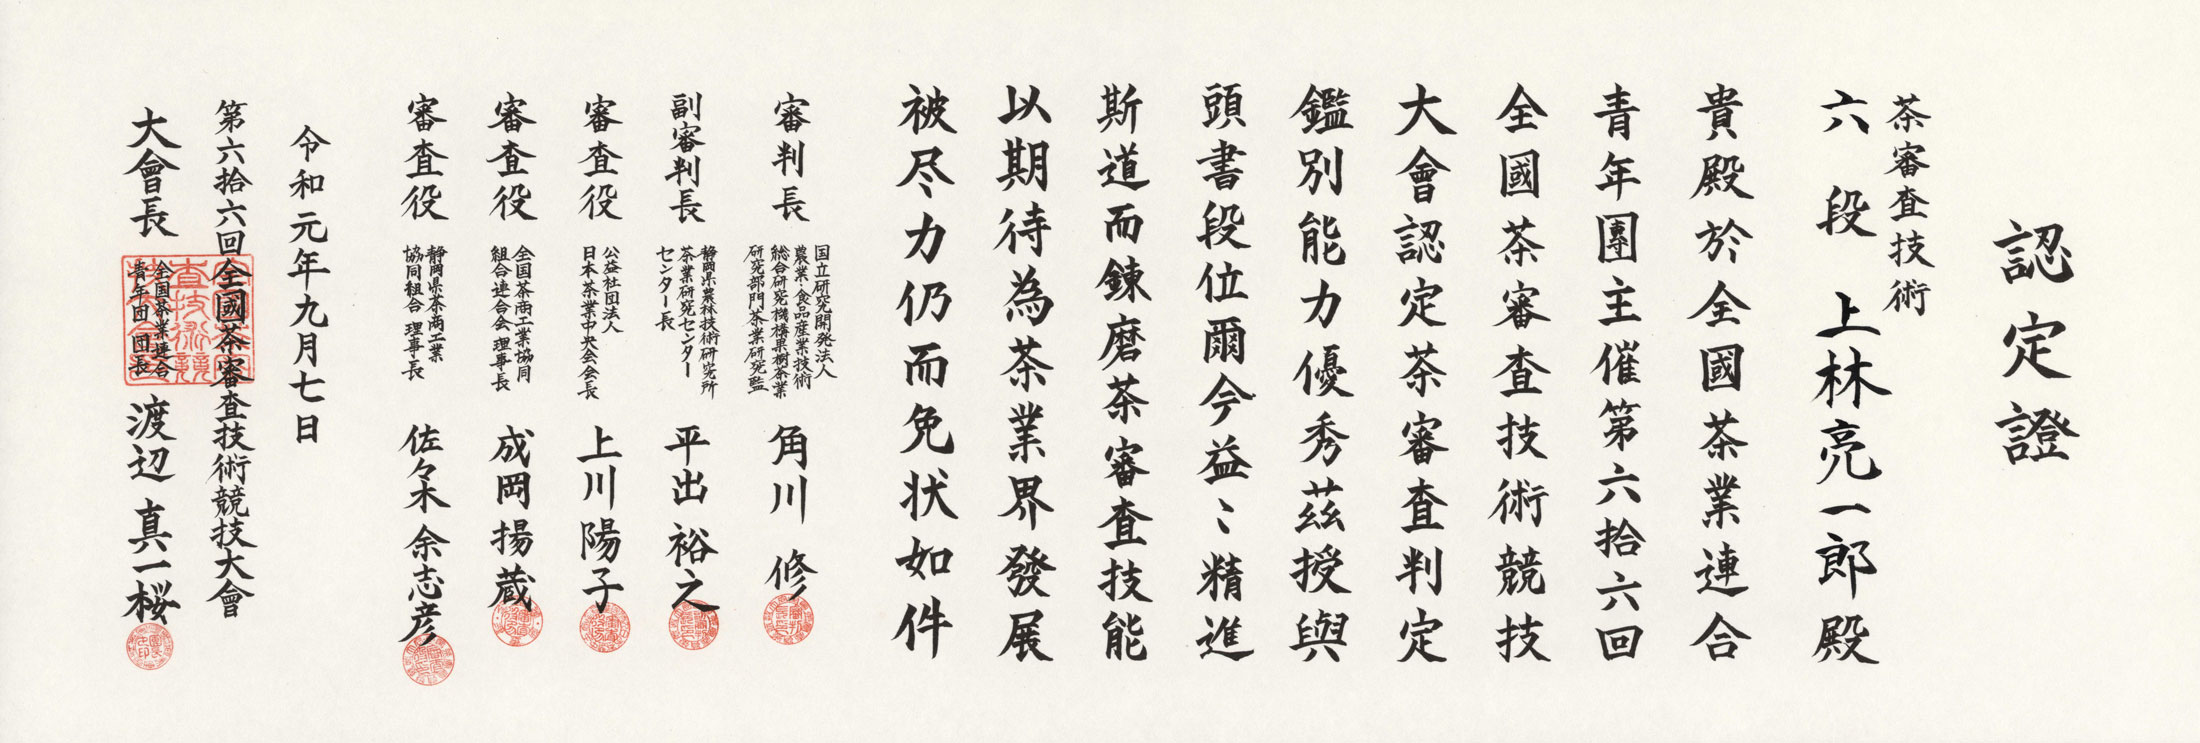 認定證
茶審査技術
六段 上林亮一郎殿
貴殿於全國茶業連合
青年團主催第六拾六回
全國茶審査技術競技
大會認定茶審査判定
鑑別能力優秀茲授與
頭書段位爾今益〻精進
斯道而錬磨茶審査技能
以期待為茶業界發展
被尽力仍而免状如件
審判長
国立研究開発法人
農業・食品産業技術
総合研究機構果樹茶業
研究部門茶業研究監
角川 修
副審判長
静岡県農林技術研究所
茶業研究センター
センター長
平出 裕之
審査役
公益社団法人
日本茶業中央会会長
上川陽子
審査役
全国茶商工業協同
組合連合会 理事長
成岡揚蔵
審査役
静岡県茶商工業
協同組合 理事長
佐々木余志彦
令和元年九月七日
第六拾六回全國茶審査技術競技大會
大會長
全国茶業連合
青年団団長
渡辺 真一桜